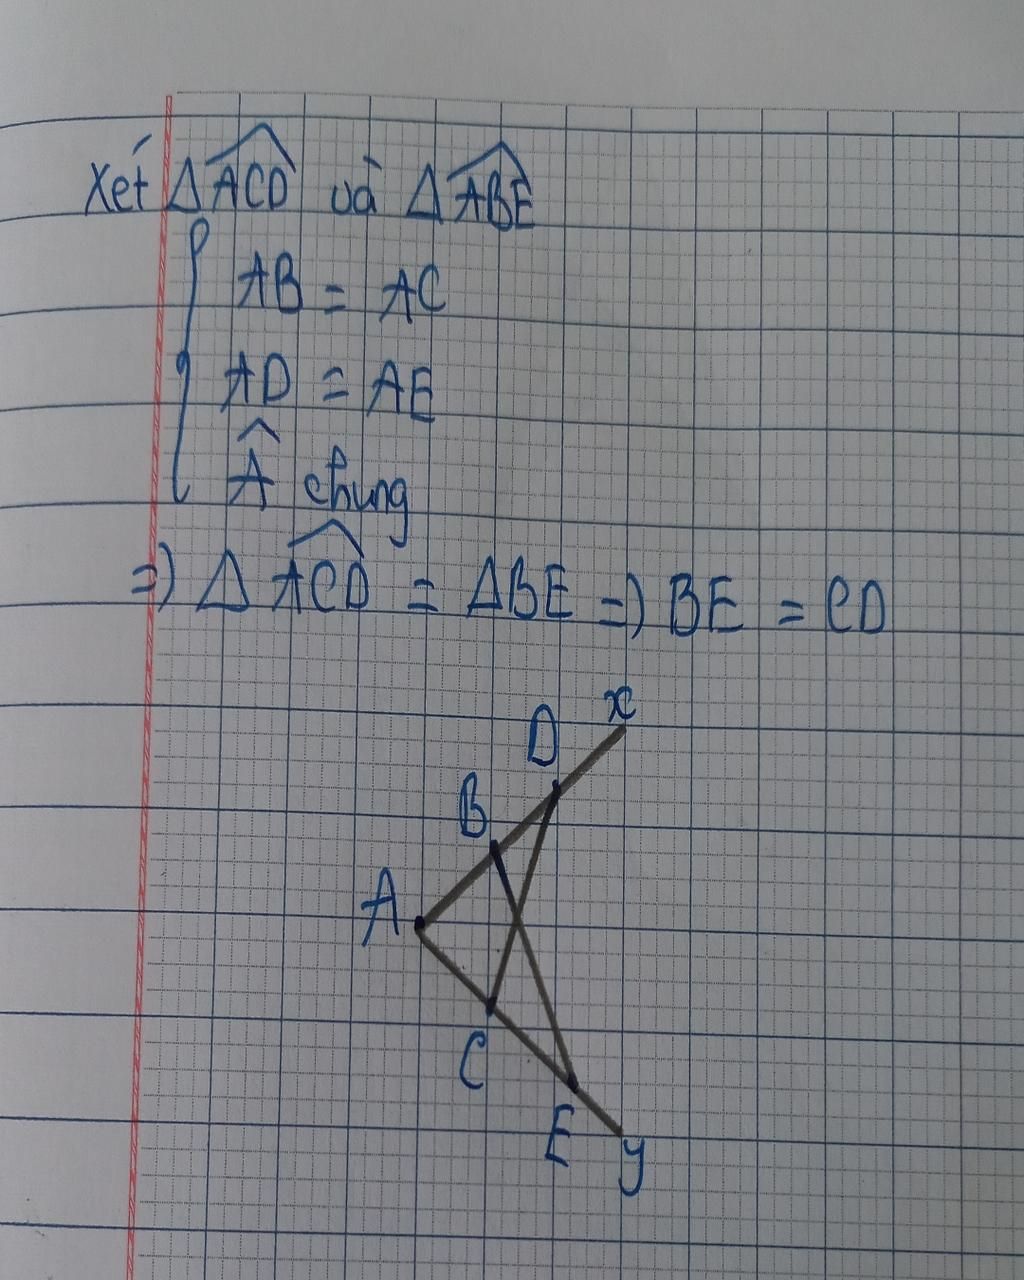 Xét Δ\widehat{ACD} và Δ\widehat{ABE}
{ AB = AC
AD = AE
Â chung
=) Δ \widehat{ACD} = ΔBE =) BE = CD
x
D
B
A
C
E
y